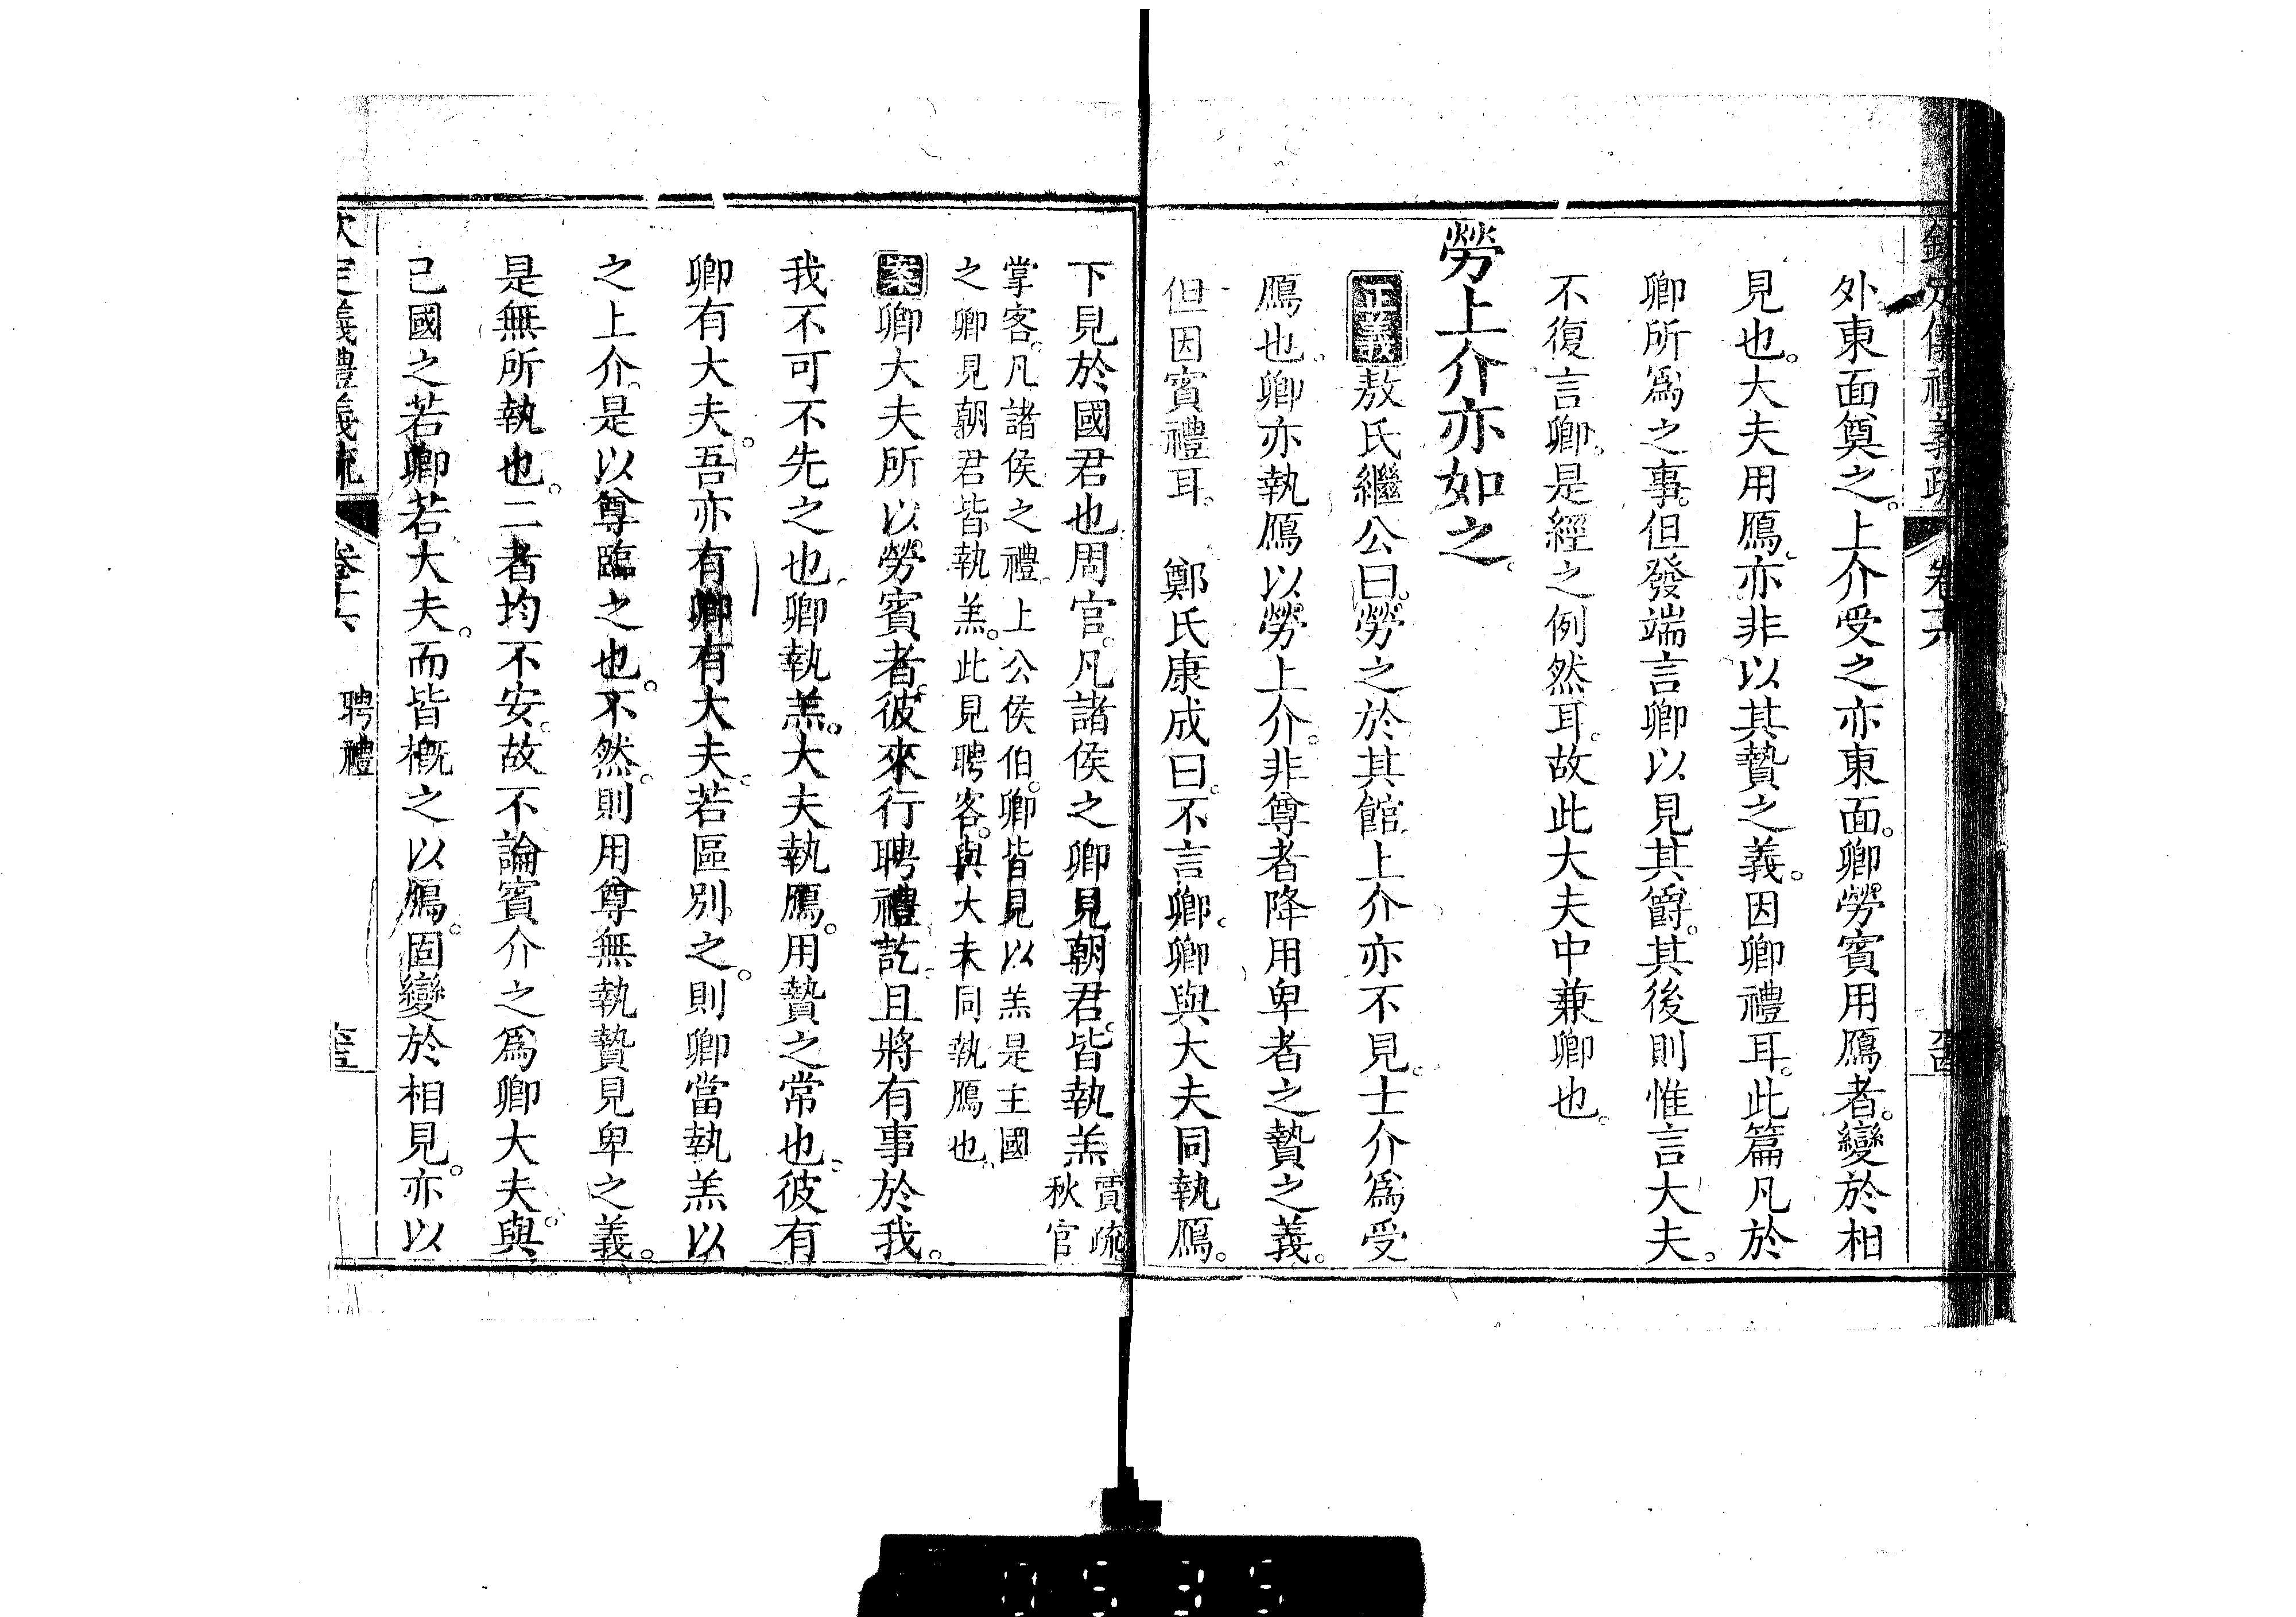 欽定儀禮義疏 卷十六
外東面奠之。上介受之亦東面。卿勞賓用鴈者。變於相
見也。大夫用鴈。亦非以其贄之義。因卿禮耳。此篇凡於
卿所爲之事。但發端言卿以見其爵。其後則惟言大夫。
不復言卿。是經之例然耳。故此大夫中兼卿也。
勞上介亦如之。
正義敖氏繼公曰。勞之於其館。上介亦不見。士介爲受
鴈也。卿亦執鴈以勞上介。非尊者降用卑者之贄之義。
但因賓禮耳。 鄭氏康成曰。不言卿。卿與大夫同執鴈。
下見於國君也周官。凡諸侯之卿見朝君。皆執羔
賈疏。
秋官
掌客。凡諸侯之禮。上公侯伯。卿皆見以羔是主國
之卿見朝君皆執羔。此見聘客。與大夫同執鴈也。
案卿大夫所以勞賓者。彼來行聘禮訖。且將有事於我。
我不可不先之也。卿執羔。大夫執鴈。用贄之常也。彼有
卿有大夫。吾亦有卿有大夫。若區別之。則卿當執羔以
之上介。是以尊臨之也。不然。則用尊無執贄見卑之義。
是無所執也。二者均不安。故不論賓介之爲卿大夫。與
己國之若卿若大夫。而皆槪之以鴈。固變於相見。亦以
欽定義禮義疏 卷十六 聘禮